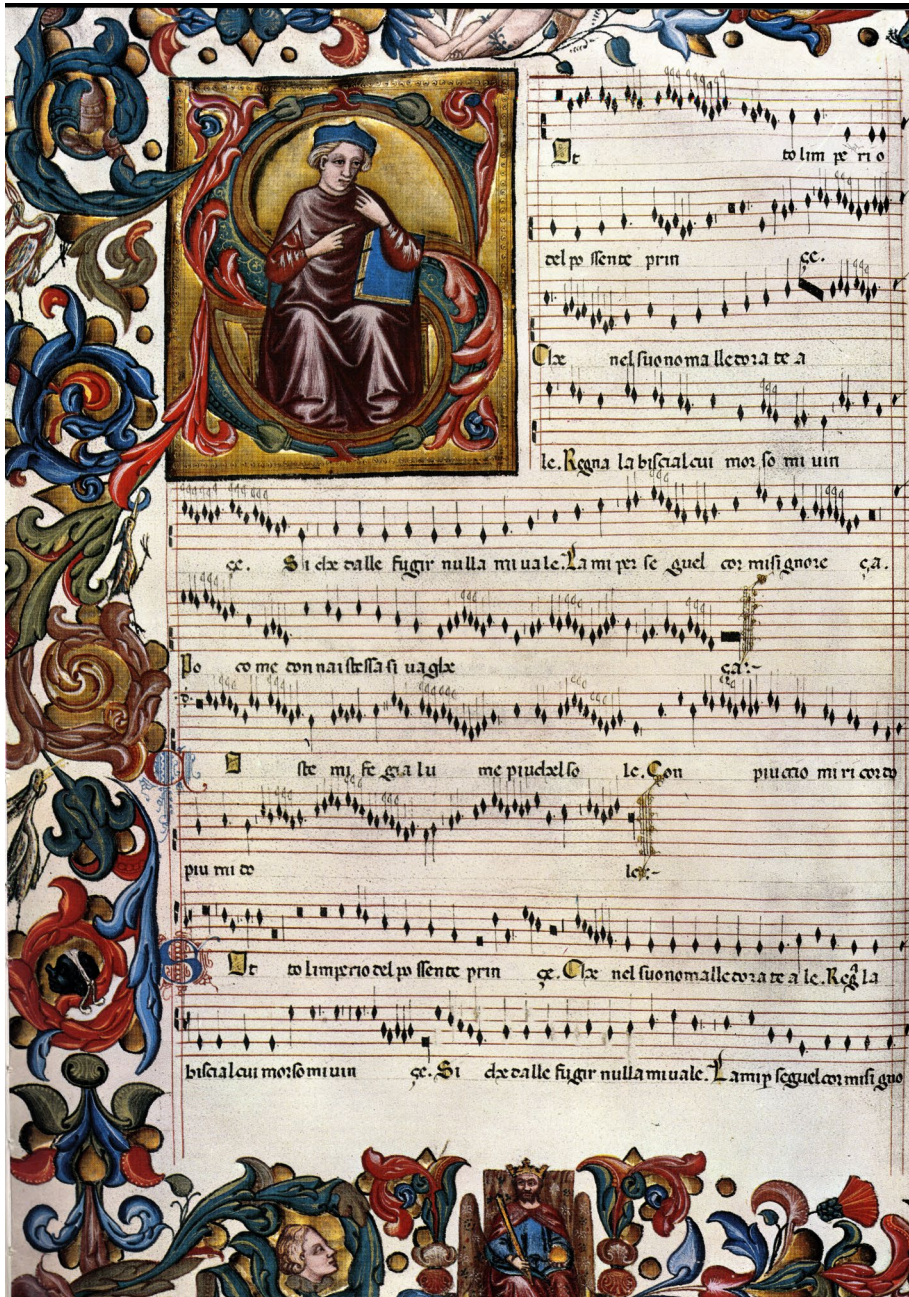 Ot to lim pe ri o
del po ssente prin çe.
Che nel suo nom a lle dora te a
le. Regna la biscial cui mor so mi uin
çe. Si che dalle fugir nulla mi uale. La mi per se guel cor misignore ça.
Po co me don na i stessa si uaghe ça:-
U ste mi fe gia lu me piu chel so le. Con piu ccio mi ricordo
piu mi do le:-
S Ot to limperio del po ssente prin çe. Che nel suo nom alle dora te a le. Reg̃ la
biscial cui morso mi uin çe. Si che dalle fugir nulla mi uale. La mi p seguel cor misi gno